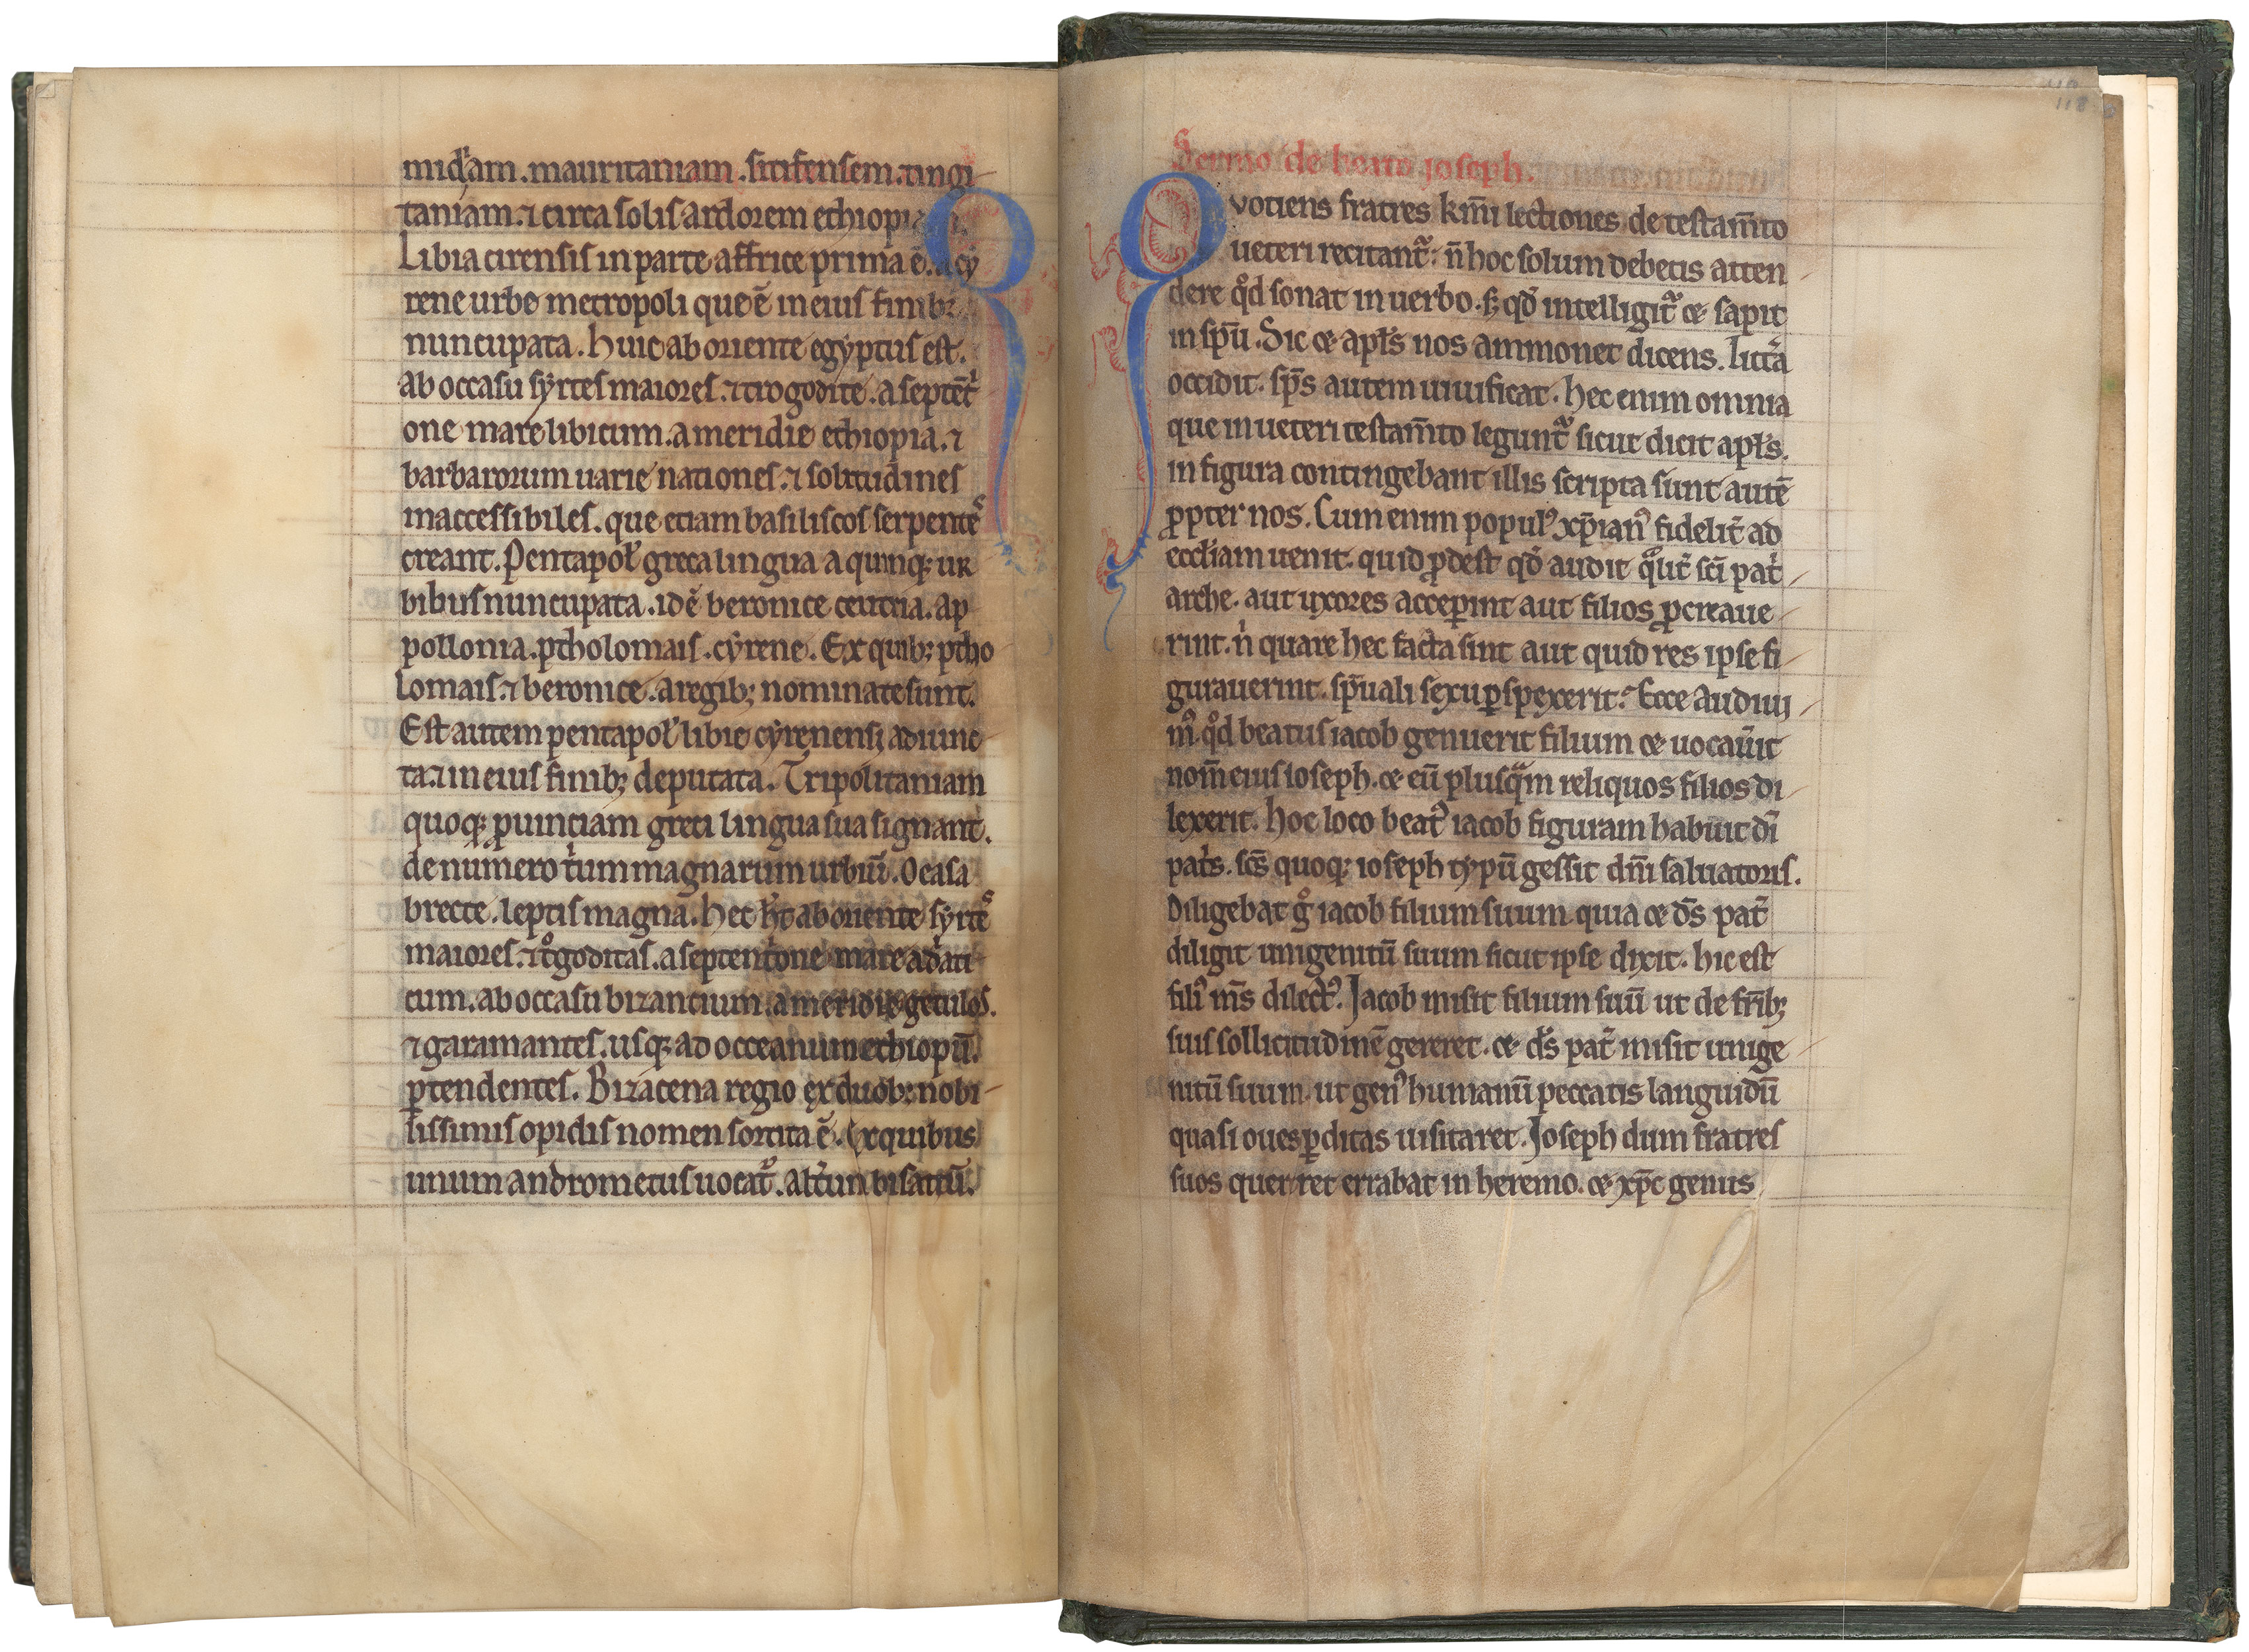 midiam. mauritaniam. sitifensem. tingi-
taniam. ⁊ circa solis ardorem ethiopia
Libia cirensis in parte affrice prima ē. a cy
rene urbe metropoli que ē in eius finibꝫ
nuncupata. Huic ab oriente egyptus est.
ab occasu syrtes maiores. ⁊ trogodite. a septēt̍
one mare libicum. a meridie ethiopia. ⁊
barbarorum uarie nationes. ⁊ solitudines
inaccessibiles. que etiam basiliscos serpente᷒
creant. Pentapoƚ greca lingua a quinqꝫ ur
bibus nuncupata. id ē beronice ceutria. ap
pollonia. ptholomais. cyrene. Ex quibꝫ ptho
lomais. ⁊ beronice. a regibꝫ nominate sunt.
Est autem pentapoƚ libie cyrenensi adiunc
ta. ⁊ in eius finibꝫ deputata. Tripolitaniam
quoqꝫ ꝓuinciam greci lingua sua signant.
de numero t̍um magnarum urbiū. Ocasa
brecte. leptis magna. hec ħt ab oriente syrte᷒
maiores. ⁊ tͦgoditas. a septent̍one mare adⁱati
cum. ab occasu bizantium. a meridie getulos.
⁊ garamantes. usqꝫ ad occeanum ethiopū.
ꝑtendentes. Bizacena regio ex duobꝫ nobi-
lissimis opidis nomen sortita ē. Ex quibus
unum andrometus uocat᷑. Alt̍um bisatiū.
118
Sermo de bono ioseph.
Quotiens fratres km̄i lectiones de testam̄to
ueteri recitant᷑. n̄ hoc solum debetis atten-
dere qͦd sonat in uerbo. sꝫ qd̄ intelligit᷑ ⁊ sapit
in sp̄u. Sic ⁊ apƚs nos ammonet dicens. litt̄a
occidit. sp̄s autem uiuificat. hec enim omnia
que in ueteri testam̄to legunt᷑ sicut dicit apƚs.
in figura contingebant illis scripta sunt autē
ꝓpter nos. Cum enim populꝰ xp̄ianꝰ fidelit̄ ad
eccƚiam uenit. quid ꝓdest qd̄ audit qᷓlit̄ sc̄i pat̍-
arche. aut uxores acceperint aut filios ꝓcreaue-
rint. n̍ quare hec facta sint aut quid res ipse fi-
gurauerint. sp̄uali sexu ꝑspexerit. Ecce audiui-
mꝰ qͦd beatus iacob genuerit filium ⁊ uocauīt
nom̄ eius ioseph. ⁊ eū plusqᷓm reliquos filios di-
lexerit. hoc loco beatꝰ iacob figuram habuit dī
pat̍s. sc̄s quoqꝫ ioseph typū gessit dn̄i saluatoris.
Diligebat gͦ iacob filium suum quia ⁊ d̄s pat̄
diligit unigenitū suum sicut ipse dixit. hic est
filiꝰ m̄s dilectꝰ. Jacob misit filium suū ut de fr̄ibꝫ
suis sollicitudinē gereret. ⁊ d̄s pat̄ misit unige-
nitū suum. ut genꝰ humanū peccatis languidū
quasi oues ꝑditas uisitaret. Joseph dum fratres
suos quereret errabat in heremo. ⁊ xp̄c genus